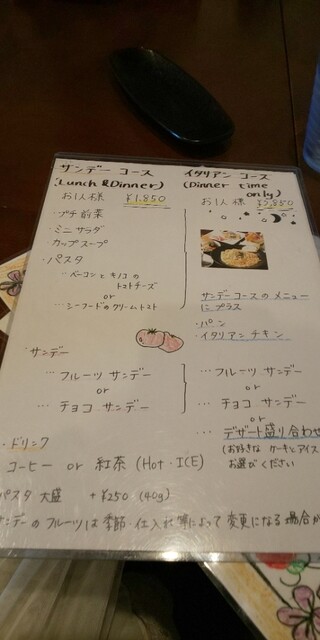 サンデー コース
(Lunch &Dinner)
お1人様 ¥1,850
・プチ前菜
・ミニサラダ
・カップスープ
・パスタ
…ベーコンとキノコの
トマトチーズ
or
…シーフードのクリームトマト
・サンデー
…フルーツ サンデー
or
…チョコ サンデー
・ドリンク
コーヒー or 紅茶 (Hot・ICE)
パスタ 大盛 +¥250 (40g)
サンデーのフルーツは季節・仕入状況等によって変更になる場合が
イタリアン コース
(Dinner time
only)
お1人様 ¥2,850
サンデーコースのメニュー
にプラス
・パン
・イタリアン チキン
…フルーツ サンデー
or
…チョコ サンデー
or
…デザート盛り合わせ
(お好きな ケーキとアイス
お選びください